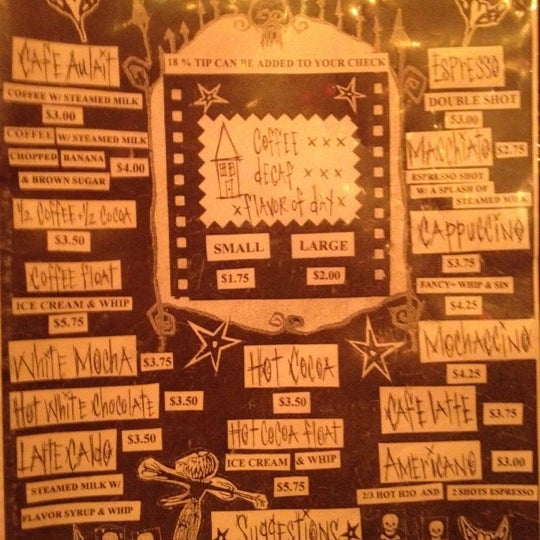 CAFE AULAIT
COFFEE W/ STEAMED MILK
$3.00
COFFEE W/ STEAMED MILK
CHOPPED BANANA
& BROWN SUGAR
$4.00
1/2 COFFEE + 1/2 COCOA
$3.50
COFFEE FLOAT
ICE CREAM & WHIP
$5.75
WHITE MOCHA $3.75
HOT WHITE CHOCOLATE $3.50
LATTE CALDO $3.50
STEAMED MILK W/
FLAVOR SYRUP & WHIP
18 % TIP CAN BE ADDED TO YOUR CHECK
COFFEE x x x
DECAF x x x
x FLAVOR OF DAY x
SMALL LARGE
$1.75 $2.00
HOT COCOA
$3.50
HOT COCOA FLOAT
ICE CREAM & WHIP
$5.75
SUGGESTIONS
ESPRESSO
DOUBLE SHOT
$3.00
MACCHIATO $2.75
ESPRESSO SHOT
W/ A SPLASH OF
STEAMED MILK
CAPPUCCINO
$3.75
FANCY= WHIP & SIN
$4.25
MOCHACCINO
$4.25
CAFE LATTE $3.75
AMERICANO $3.00
2/3 HOT H2O AND 2 SHOTS ESPRESSO